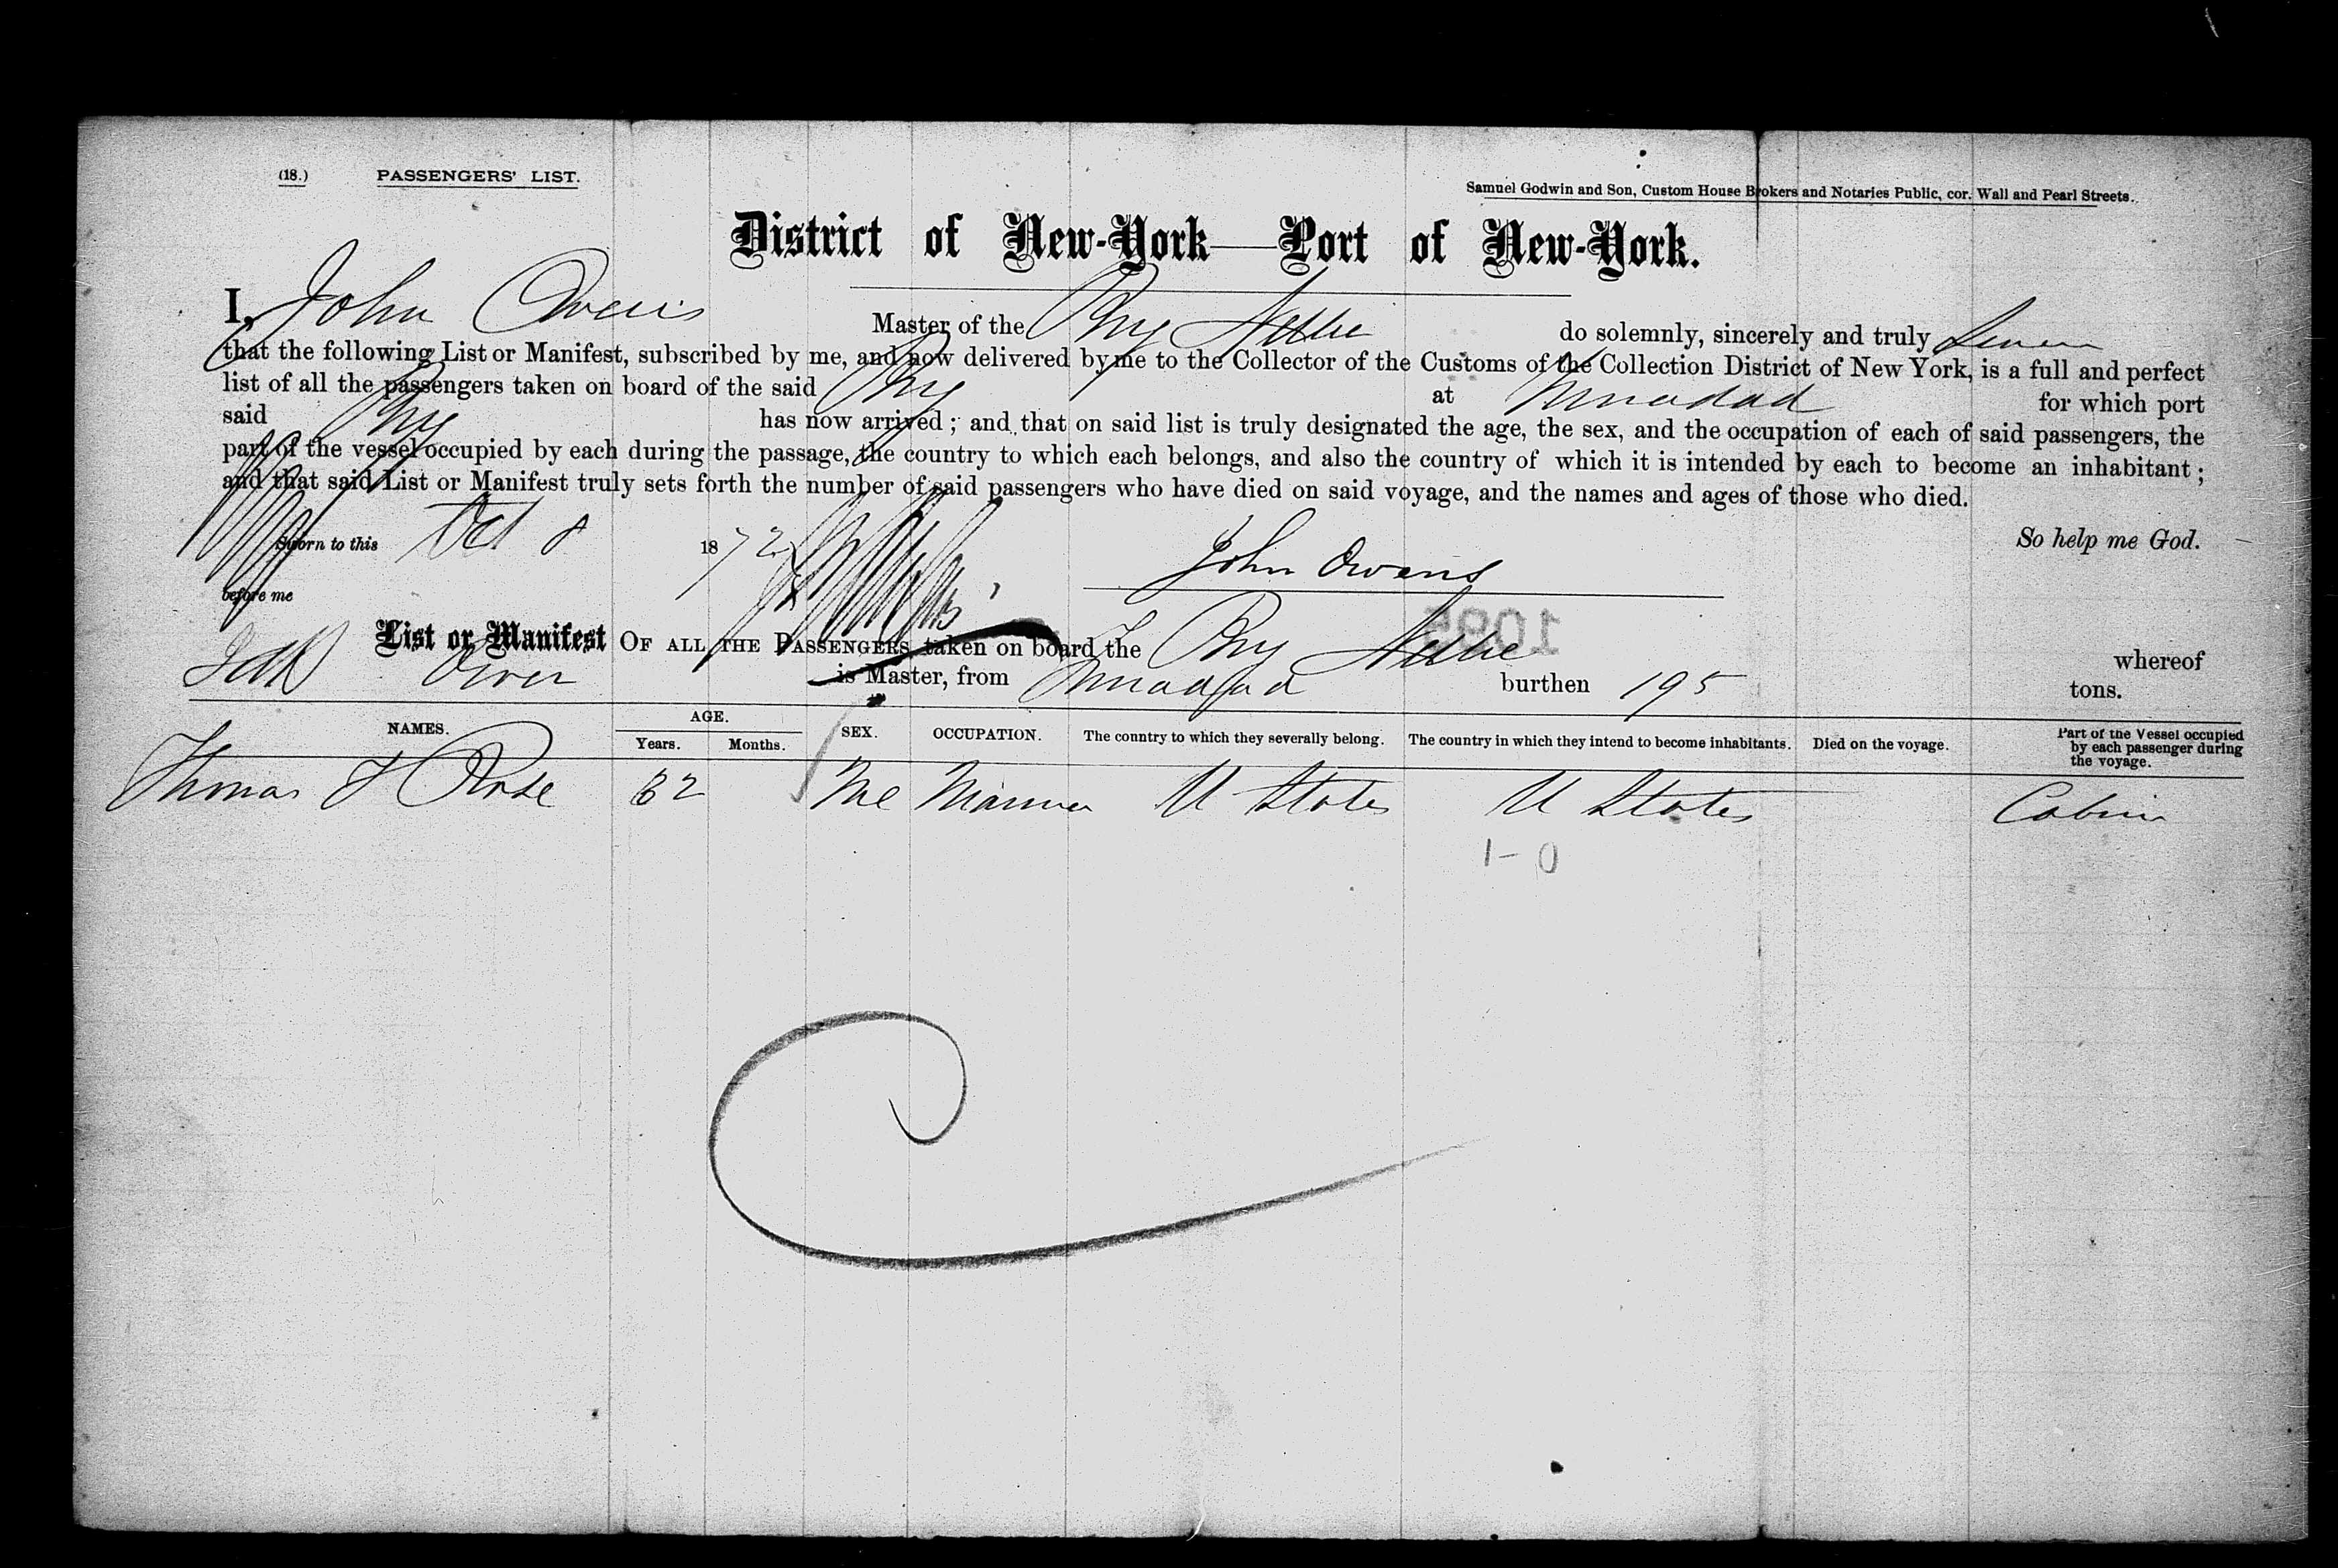 (18.) PASSENGERS' LIST.
Samuel Godwin and Son, Custom House Brokers and Notaries Public, cor. Wall and Pearl Streets.
District of New-York—Port of New-York.
I, John Owens Master of the Brig Nellie do solemnly, sincerely and truly Swear
that the following List or Manifest, subscribed by me, and now delivered by me to the Collector of the Customs of the Collection District of New York, is a full and perfect
list of all the passengers taken on board of the said Brig at Trinidad for which port
said Brig has now arrived; and that on said list is truly designated the age, the sex, and the occupation of each of said passengers, the
part of the vessel occupied by each during the passage, the country to which each belongs, and also the country of which it is intended by each to become an inhabitant;
and that said List or Manifest truly sets forth the number of said passengers who have died on said voyage, and the names and ages of those who died.
Sworn to this Oct 8 1872 So help me God.
John Owens
before me
1095
List or Manifest OF ALL THE PASSENGERS taken on board the Brig Nellie whereof
is Master, from Trinidad burthen 195 tons.
NAMES. AGE. Years. Months. SEX. OCCUPATION. The country to which they severally belong. The country in which they intend to become inhabitants. Died on the voyage. Part of the Vessel occupied by each passenger during the voyage.
Thomas F Rose 62 Mle Mariner U States U States Cabin
1-0